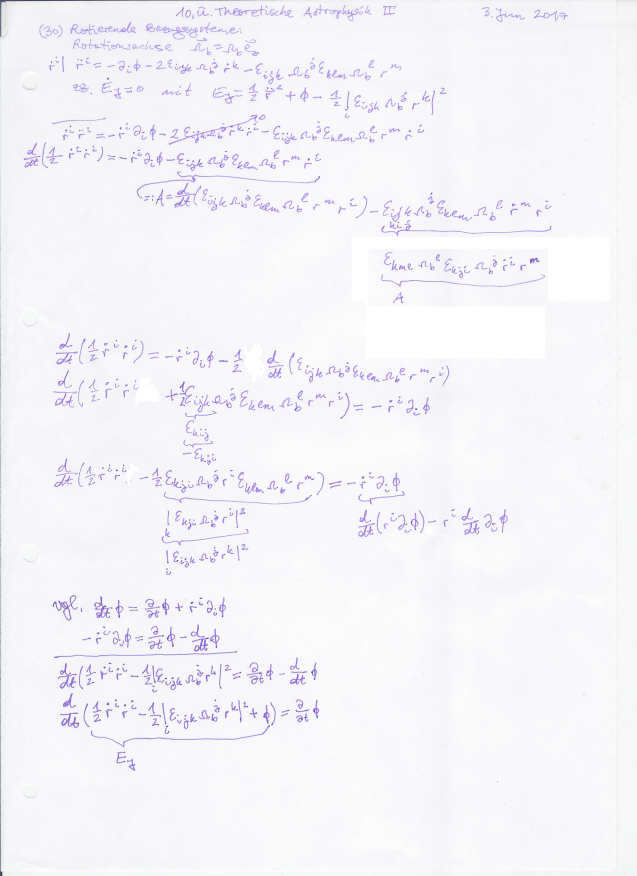 10. Ü. Theoretische Astrophysik II 3. Jun 2017
(30) Rotierende Bezugssysteme:
Rotationsachse Ω⃗_b = Ω_b e⃗_z
ṙ^i | r̈^i = -∂_i ϕ - 2ε_ijk Ω_b^j ṙ^k - ε_ijk Ω_b^j ε_klm Ω_b^l r^m
zz. Ė_J = 0 mit E_J = 1/2 ṙ⃗² + ϕ - 1/2 |ε_ijk Ω_b^j r^k|²
i
ṙ^i r̈^i = -ṙ^i ∂_i ϕ - 2 ε_ijk Ω_b^j ṙ^k ṙ^i - ε_ijk Ω_b^j ε_klm Ω_b^l r^m ṙ^i
d/dt (1/2 ṙ^i ṙ^i) = -ṙ^i ∂_i ϕ - ε_ijk Ω_b^j ε_klm Ω_b^l r^m ṙ^i
=: A = d/dt (ε_ijk Ω_b^j ε_klm Ω_b^l r^m r^i) - ε_ijk Ω_b^j ε_klm Ω_b^l ṙ^m r^i
kij
ε_kml Ω_b^l ε_kji Ω_b^j r^i ṙ^m
A
d/dt (1/2 ṙ^i ṙ^i) = -ṙ^i ∂_i ϕ - 1/2 d/dt (ε_ijk Ω_b^j ε_klm Ω_b^l r^m r^i)
d/dt (1/2 ṙ^i ṙ^i + 1/2 ε_ijk Ω_b^j ε_klm Ω_b^l r^m r^i) = -ṙ^i ∂_i ϕ
ε_kij
-ε_kji
d/dt (1/2 ṙ^i ṙ^i - 1/2 ε_kji Ω_b^j r^i ε_klm Ω_b^l r^m) = -ṙ^i ∂_i ϕ
|ε_kji Ω_b^j r^i|² d/dt (r^i ∂_i ϕ) - r^i d/dt ∂_i ϕ
k
|ε_ijk Ω_b^j r^k|²
i
vgl. d/dt ϕ = ∂/∂t ϕ + ṙ^i ∂_i ϕ
-ṙ^i ∂_i ϕ = ∂/∂t ϕ - d/dt ϕ
d/dt (1/2 ṙ^i ṙ^i - 1/2 |ε_ijk Ω_b^j r^k|² = ∂/∂t ϕ - d/dt ϕ
i
d/dt (1/2 ṙ^i ṙ^i - 1/2 |ε_ijk Ω_b^j r^k|² + ϕ) = ∂/∂t ϕ
i
E_J